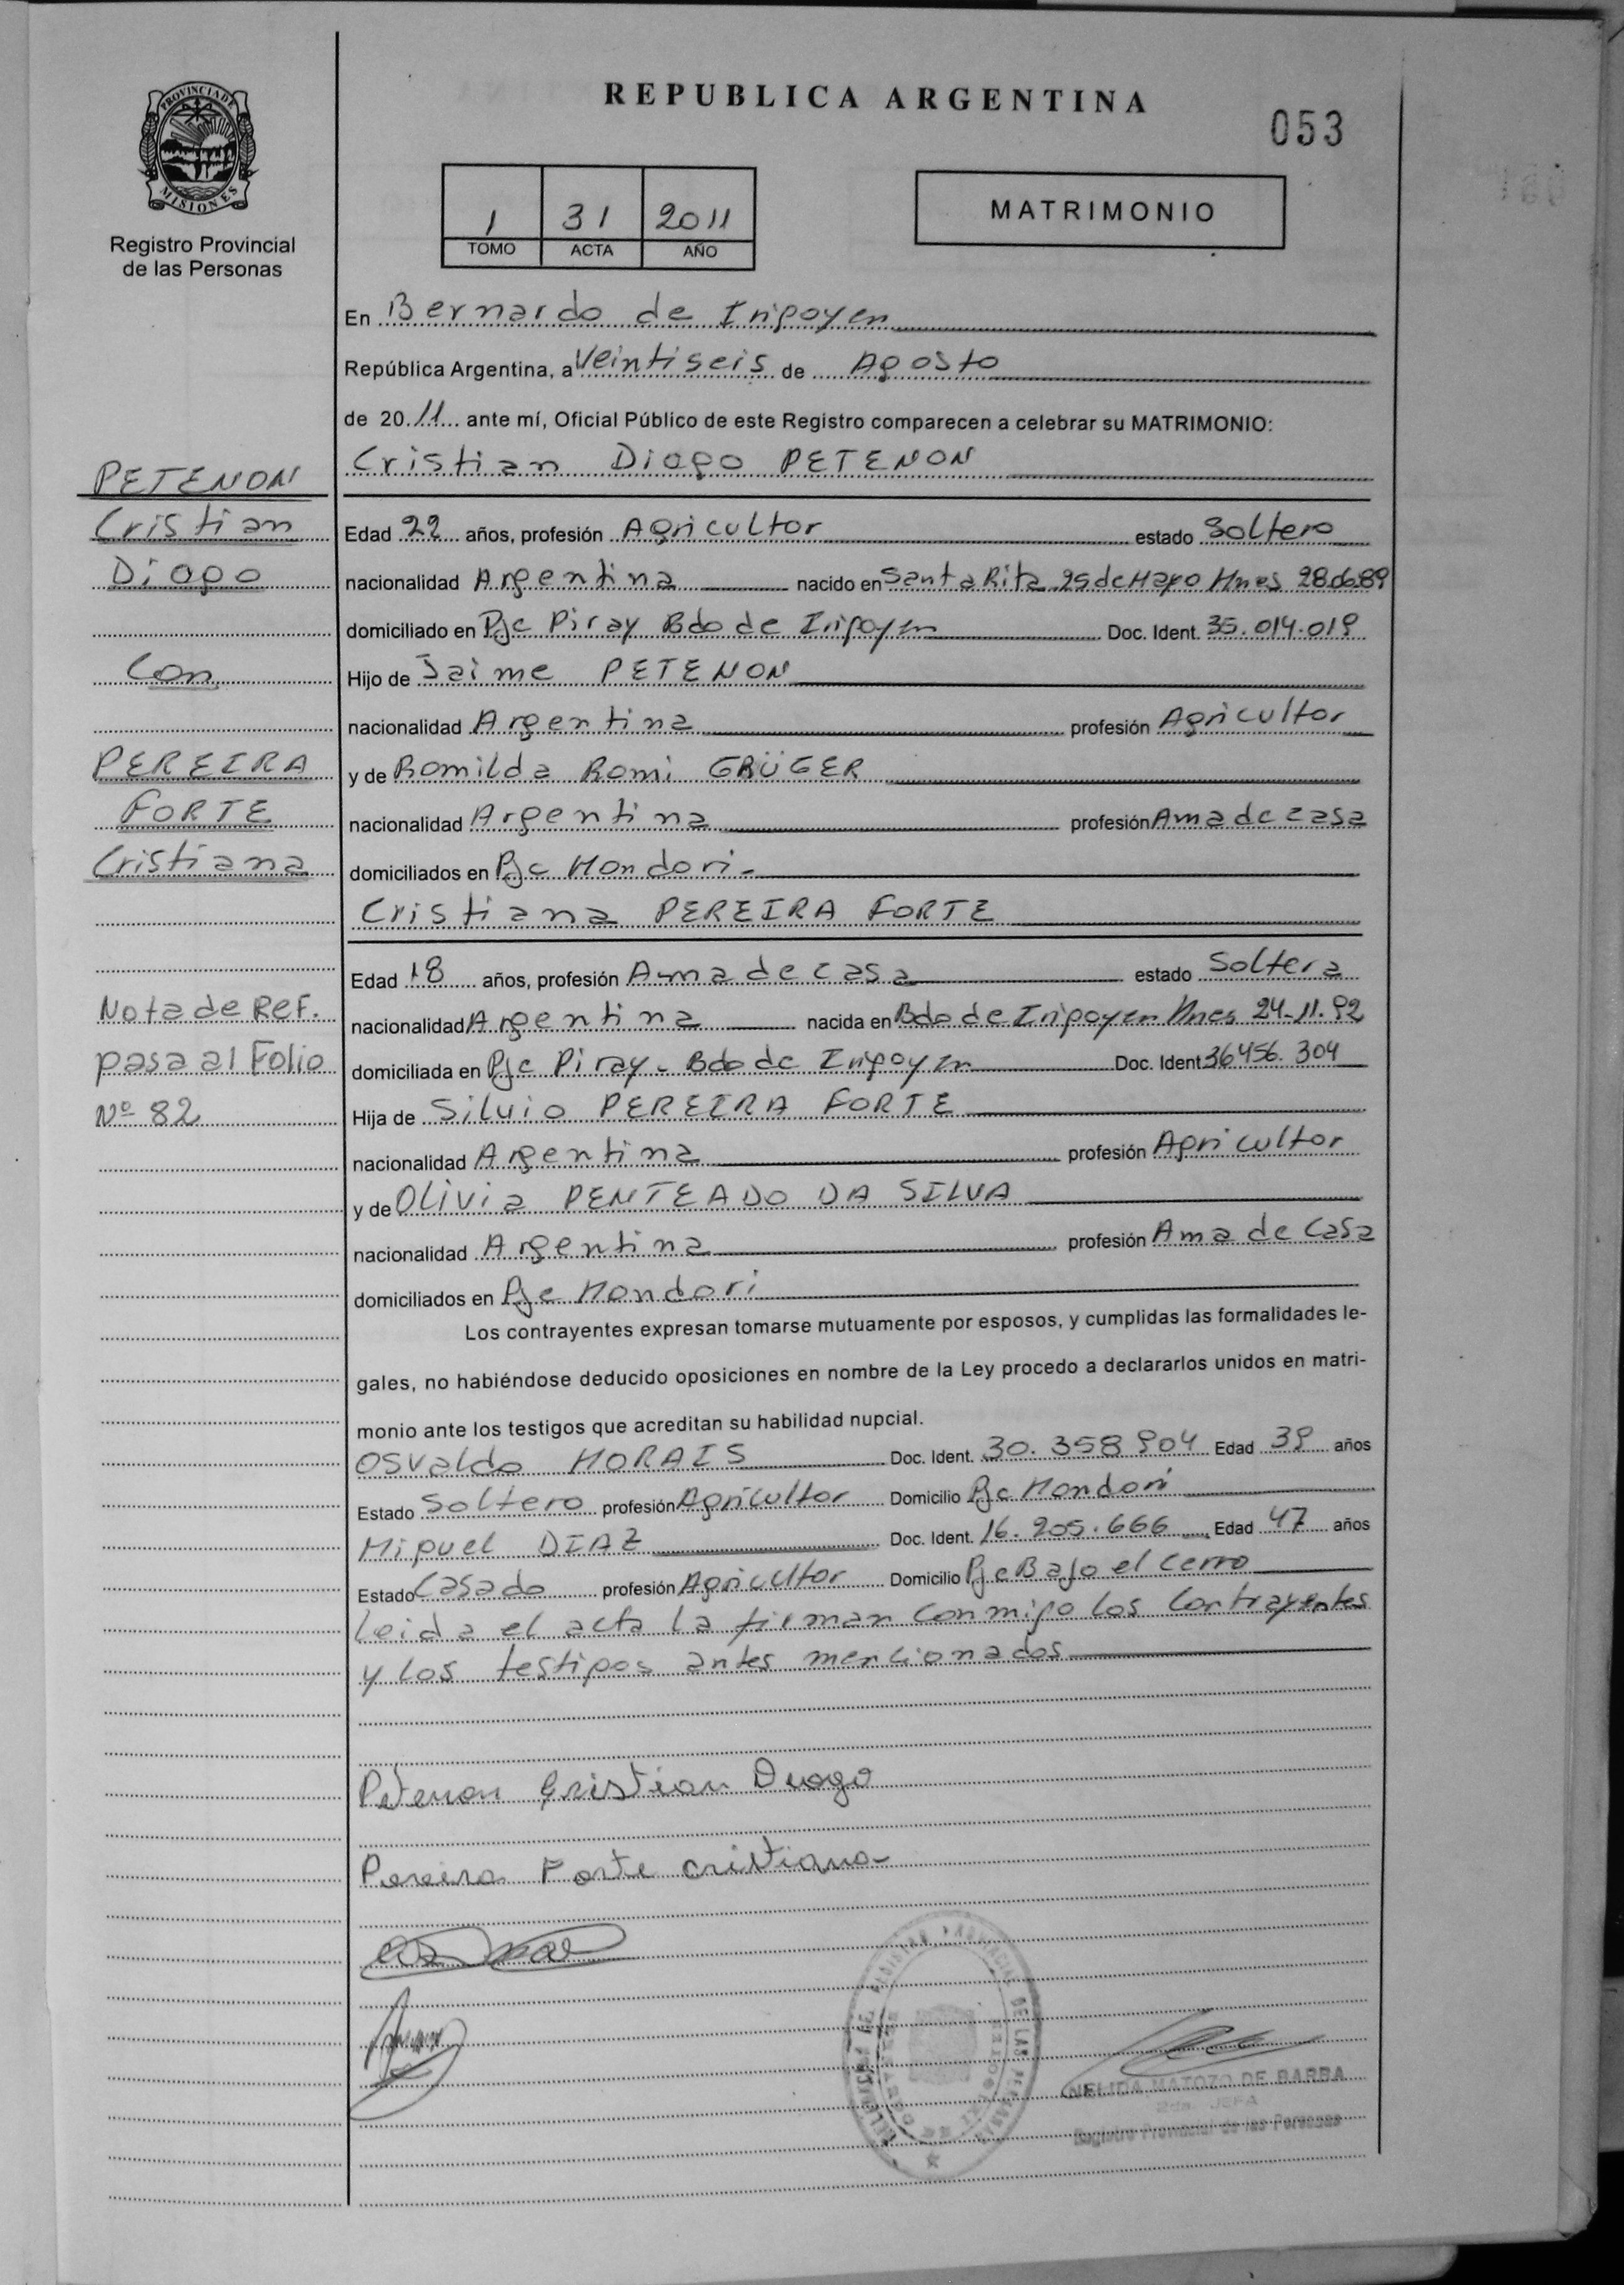 REPUBLICA ARGENTINA
053
PROVINCIA DE
MISIONES
Registro Provincial
de las Personas
1 31 2011
TOMO ACTA AÑO
MATRIMONIO
En Bernardo de Irigoyen
República Argentina, a Veintiseis de Agosto
de 2011 ante mí, Oficial Público de este Registro comparecen a celebrar su MATRIMONIO:
Cristian Diogo PETENON
PETENON
Cristian
Diogo
Con
PEREIRA
FORTE
Cristiana
Nota de Ref.
pasa al Folio
Nº 82
Edad 22 años, profesión Agricultor estado Soltero
nacionalidad Argentina nacido en Santa Rita 25 de Mayo Mnes 28.06.89
domiciliado en Pje Piray Bdo de Irigoyen Doc. Ident. 35.014.019
Hijo de Jaime PETENON
nacionalidad Argentina profesión Agricultor
y de Romilda Romi GRÜGER
nacionalidad Argentina profesión Ama de casa
domiciliados en Pje Mondori
Cristiana PEREIRA FORTE
Edad 18 años, profesión Ama de casa estado Soltera
nacionalidad Argentina nacida en Bdo de Irigoyen Mnes 24-11.92
domiciliada en Pje Piray - Bdo de Irigoyen Doc. Ident 36456.304
Hija de Silvio PEREIRA FORTE
nacionalidad Argentina profesión Agricultor
y de Olivia PENTEADO DA SILVA
nacionalidad Argentina profesión Ama de Casa
domiciliados en Pje Mondori
Los contrayentes expresan tomarse mutuamente por esposos, y cumplidas las formalidades le-
gales, no habiéndose deducido oposiciones en nombre de la Ley procedo a declararlos unidos en matri-
monio ante los testigos que acreditan su habilidad nupcial.
Osvaldo MORAIS Doc. Ident. 30.358.904 Edad 39 años
Estado Soltero profesión Agricultor Domicilio Pje Mondori
Miguel DIAZ Doc. Ident. 16.205.666 Edad 47 años
Estado Casado profesión Agricultor Domicilio Pje Bajo el cerro
Leida el acta la firman conmigo los Contrayentes
y los testigos antes mencionados
Petenon Cristian Diogo
Pereira Forte cristiana
NELIDA MATOZO DE BARBA
2da. JEFA
Registro Provincial de las Personas